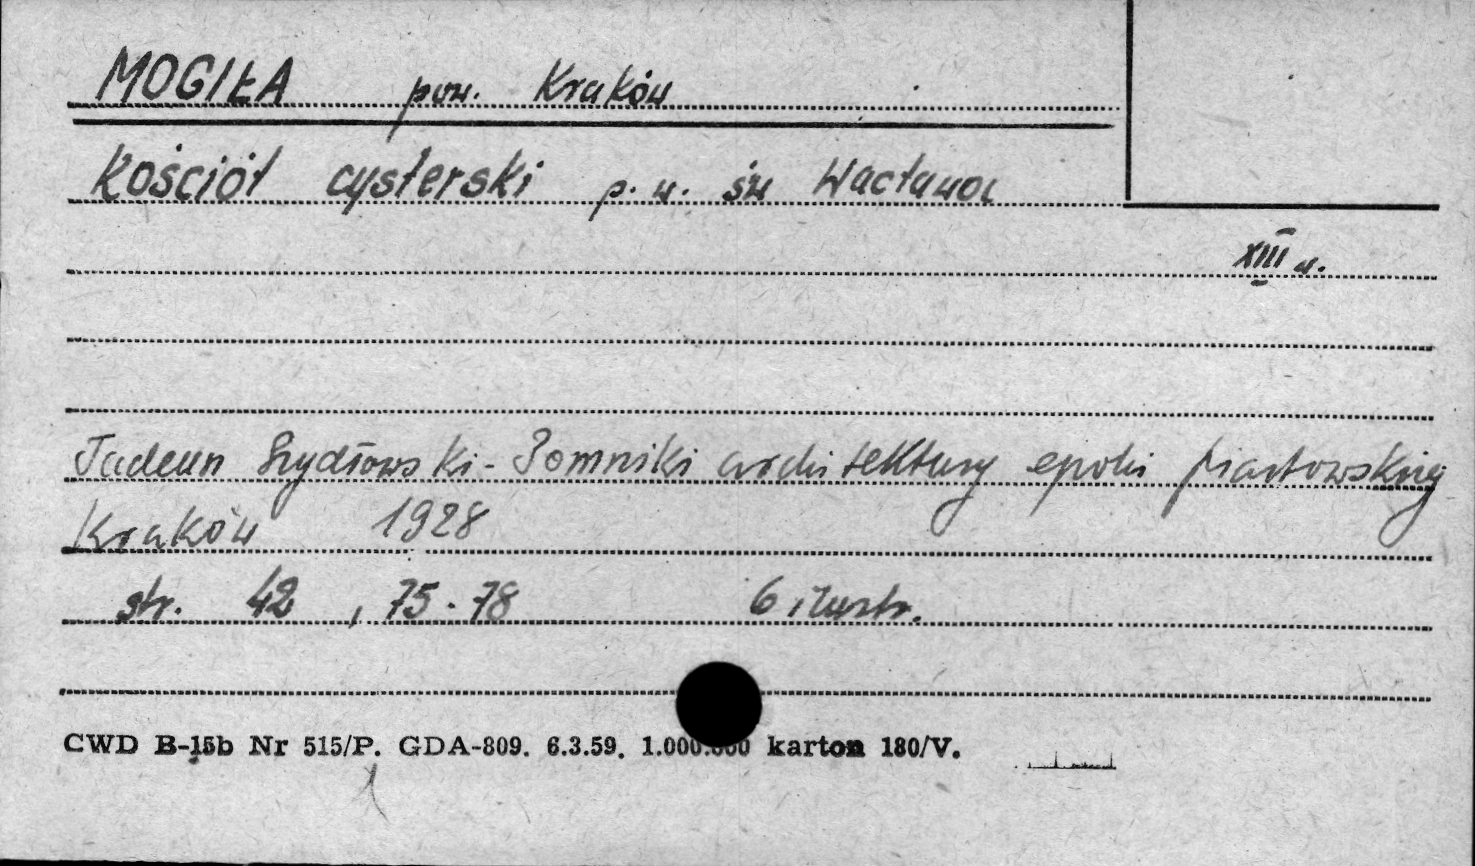 MOGIŁA pow. Kraków
Kościół cysterski p.w. św Wacława
XIII w.
Tadeusz Szydłowski - Pomniki architektury epoki piastowskiej
Kraków 1928
str. 42, 75-78 6 ilustr.
CWD B-15b Nr 515/P. GDA-809. 6.3.59. 1.000.000 karton 180/V.